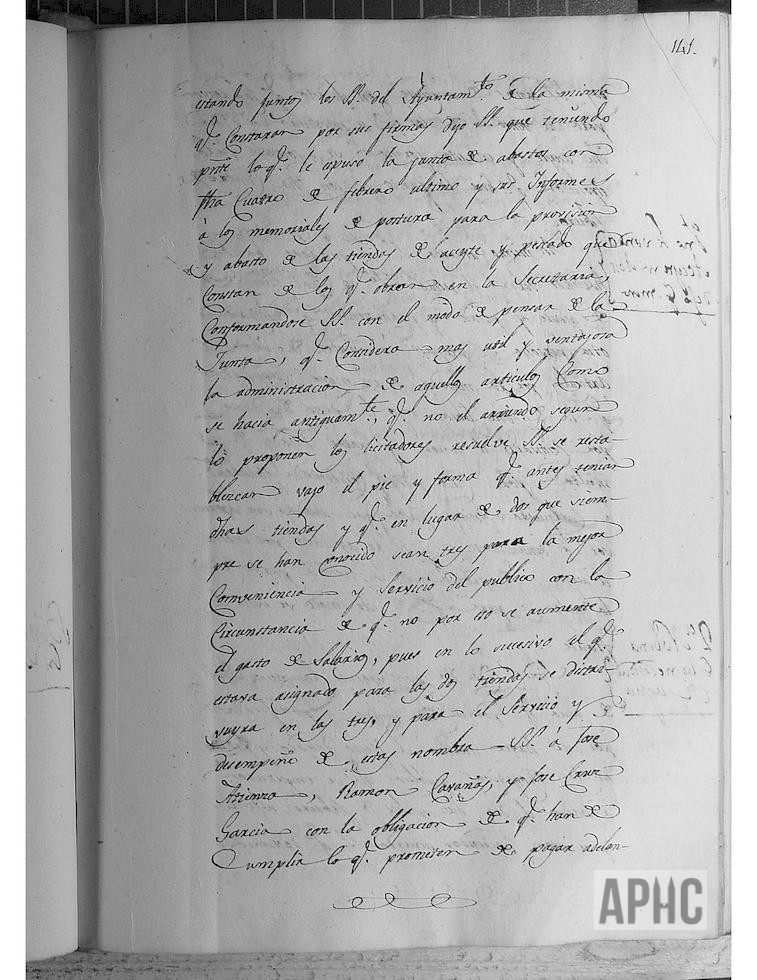 141.
estando juntos los SS. del Ayuntam.to de la misma
q.e Constaran por sus firmas Dijo SS. que teniendo
pnte lo q.e le expuso la junta de abastos con
fha Cuatro de febrero ultimo y sus Informes
á los memoriales de postura para la provision
y abasto de las tiendas de aceyte y pescado que
Constan de los q.e obran en la Secretaria,
Conformandose SS. con el modo de pensar de la
Junta, q.e Considera mas util y ventajosa
la administracion de aquellos articulos Como
se hacia antiguam.te, q.e no el arriendo segun
lo proponen los licitadores resuelve SS. se resta-
blezcan vajo el pie y forma q.e antes tenian
dhas tiendas y q.e en lugar de dos que siem-
pre se han conocido sean tres para la mejor
Conveniencia y Servicio del publico con la
Circunstancia de q.e no por eso se aumente
el gasto de Salarios, pues en lo sucesivo el q.e
estava asignado para las dos tiendas se distri-
vuyra en las tres, y para el Servicio y
desempeño de estas nombra SS. á Jose
Atienza, Ramon Cavañas, y Jose Cruz
Garcia con la obligacion de q.e han de
Cumplir lo q.e prometen de pagar adelan-
APHC